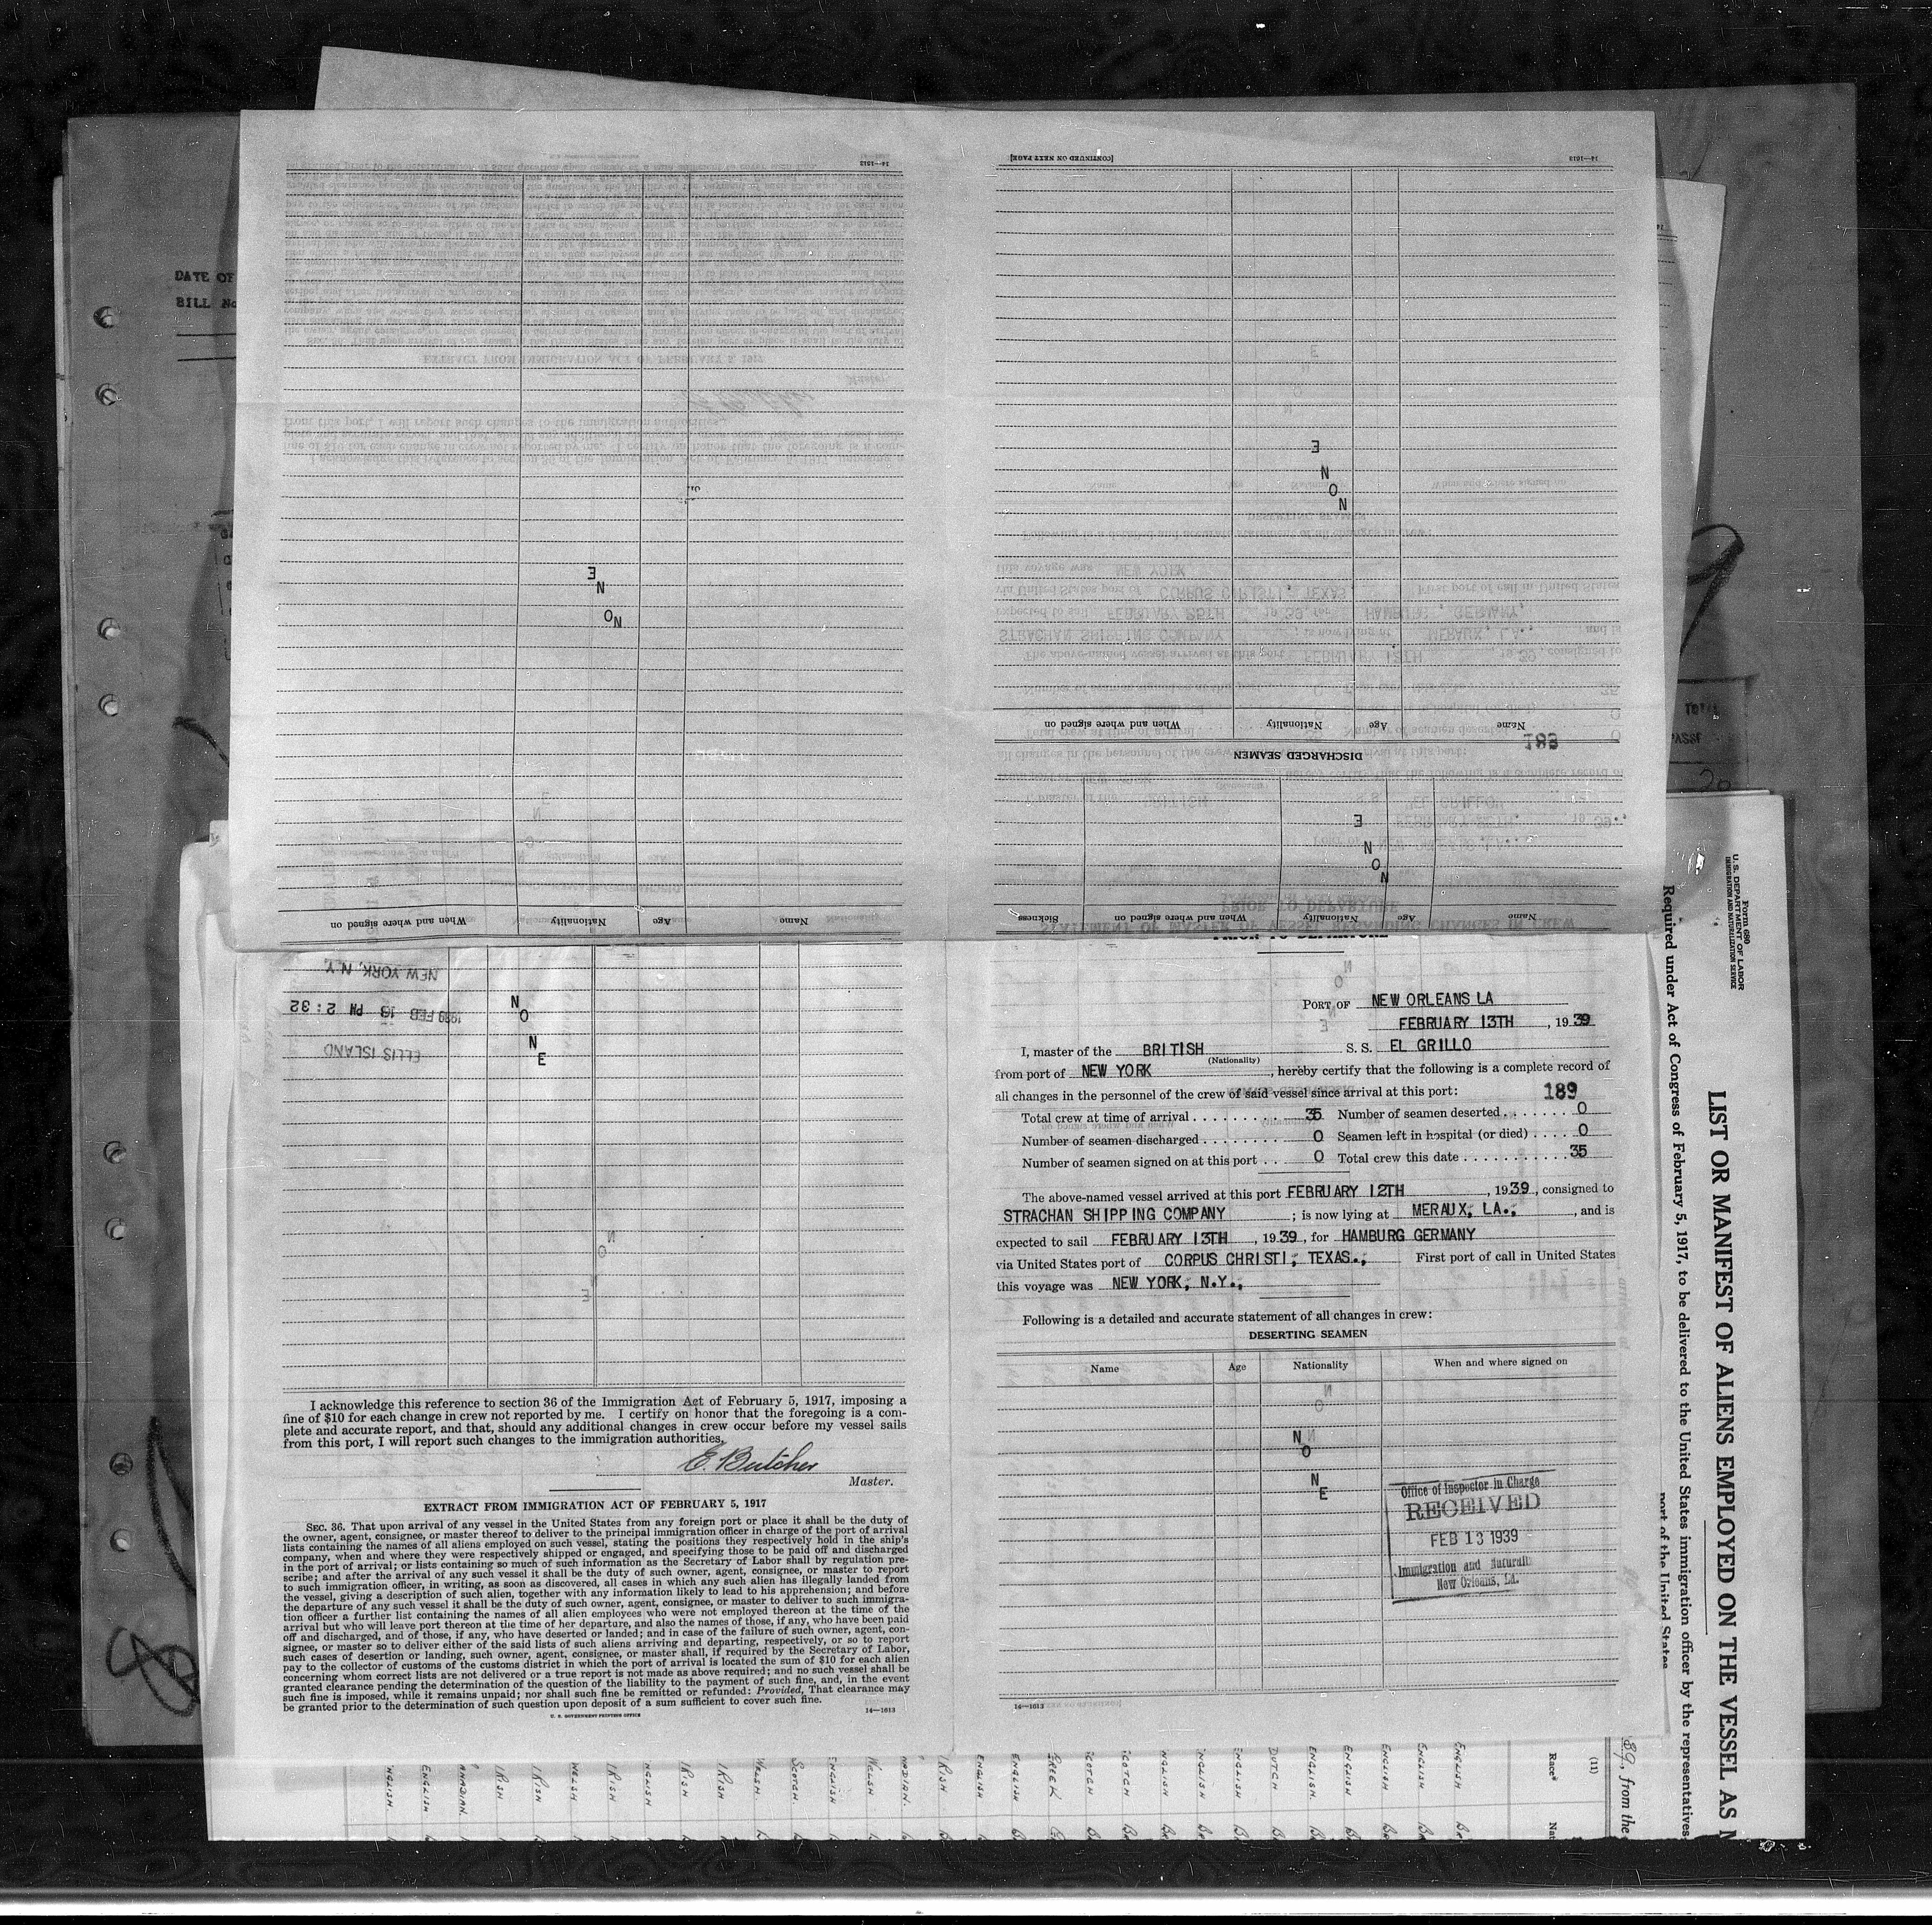 DATE OF
BILL No
14—1613
[CONTINUED ON NEXT PAGE]
14—1613
E
N
O
N
E
N
O
N
Name
Age
Nationality
When and where signed on
189
DISCHARGED SEAMEN
E
N
O
N
Name
Age
Nationality
When and where signed on
Sickness
Name
Age
Nationality
When and where signed on
NEW YORK, N.Y.
1939 FEB 13 PM 2:32
ELLIS ISLAND
N
O
N
E
I acknowledge this reference to section 36 of the Immigration Act of February 5, 1917, imposing a
fine of $10 for each change in crew not reported by me. I certify on honor that the foregoing is a com-
plete and accurate report, and that, should any additional changes in crew occur before my vessel sails
from this port, I will report such changes to the immigration authorities.
E. Butcher
Master.
EXTRACT FROM IMMIGRATION ACT OF FEBRUARY 5, 1917
SEC. 36. That upon arrival of any vessel in the United States from any foreign port or place it shall be the duty of
the owner, agent, consignee, or master thereof to deliver to the principal immigration officer in charge of the port of arrival
lists containing the names of all aliens employed on such vessel, stating the positions they respectively hold in the ship's
company, when and where they were respectively shipped or engaged, and specifying those to be paid off and discharged
in the port of arrival; or lists containing so much of such information as the Secretary of Labor shall by regulation pre-
scribe; and after the arrival of any such vessel it shall be the duty of such owner, agent, consignee, or master to report
to such immigration officer, in writing, as soon as discovered, all cases in which any such alien has illegally landed from
the vessel, giving a description of such alien, together with any information likely to lead to his apprehension; and before
the departure of any such vessel it shall be the duty of such owner, agent, consignee, or master to deliver to such immigra-
tion officer a further list containing the names of all alien employees who were not employed thereon at the time of the
arrival but who will leave port thereon at the time of her departure, and also the names of those, if any, who have been paid
off and discharged, and of those, if any, who have deserted or landed; and in case of the failure of such owner, agent, con-
signee, or master so to deliver either of the said lists of such aliens arriving and departing, respectively, or so to report
such cases of desertion or landing, such owner, agent, consignee, or master shall, if required by the Secretary of Labor,
pay to the collector of customs of the customs district in which the port of arrival is located the sum of $10 for each alien
concerning whom correct lists are not delivered or a true report is not made as above required; and no such vessel shall be
granted clearance pending the determination of the question of the liability to the payment of such fine, and, in the event
such fine is imposed, while it remains unpaid; nor shall such fine be remitted or refunded: Provided, That clearance may
be granted prior to the determination of such question upon deposit of a sum sufficient to cover such fine.
U. S. GOVERNMENT PRINTING OFFICE
14—1613
PRIOR TO DEPARTURE
PORT OF NEW ORLEANS LA
FEBRUARY 13TH, 1939
I, master of the BRITISH S. S. EL GRILLO
(Nationality)
from port of NEW YORK, hereby certify that the following is a complete record of
all changes in the personnel of the crew of said vessel since arrival at this port:
189
Total crew at time of arrival . . . . . . . . . 35 Number of seamen deserted . . . . . . . 0
Number of seamen discharged . . . . . . . . 0 Seamen left in hospital (or died) . . . . 0
Number of seamen signed on at this port . . 0 Total crew this date . . . . . . . . . . . 35
The above-named vessel arrived at this port FEBRUARY 12TH, 1939, consigned to
STRACHAN SHIPPING COMPANY; is now lying at MERAUX, LA., and is
expected to sail FEBRUARY 13TH, 1939, for HAMBURG GERMANY
via United States port of CORPUS CHRISTI, TEXAS., First port of call in United States
this voyage was NEW YORK, N.Y.,
Following is a detailed and accurate statement of all changes in crew:
DESERTING SEAMEN
Name
Age
Nationality
When and where signed on
N
O
N
E
Office of Inspector in Charge
RECEIVED
FEB 13 1939
Immigration and Naturali
New Orleans, La.
14—1613
Form 680
U. S. DEPARTMENT OF LABOR
IMMIGRATION AND NATURALIZATION SERVICE
LIST OR MANIFEST OF ALIENS EMPLOYED ON THE VESSEL AS M
Required under Act of Congress of February 5, 1917, to be delivered to the United States immigration officer by the representatives
port of the United States
39, from the
(11)
Race*
Nat
ENGLISH
ENGLISH
ENGLISH
ENGLISH
ENGLISH
DUTCH
ENGLISH
NGLISH
NGLISH
COTCH
COTCH
GREEK
ENGLISH
ENGLISH
IRISH
NADIAN.
WELSH
ENGLISH
SCOTCH
WELSH.
IRISH
IRISH
NGLISH
IRISH
WELSH
IRISH
IRISH
ANADIAN.
ENGLISH
NGLISH